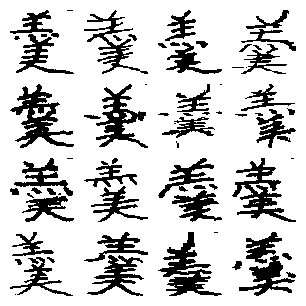 羹羹羹羹
羹羹羹羹
羹羹羹羹
羹羹羹羹